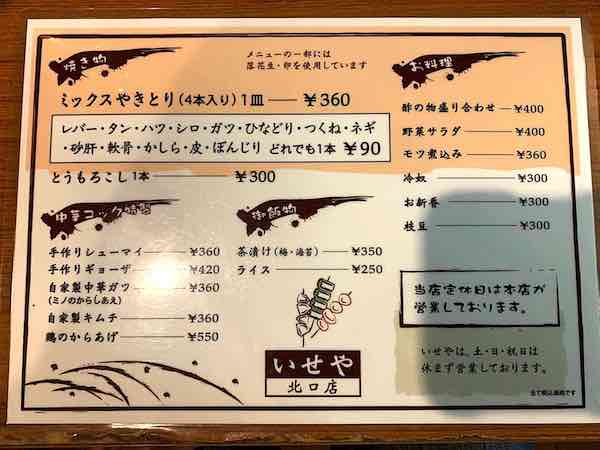 焼き物
メニューの一部には
落花生・卵を使用しています
ミックスやきとり(4本入り)1皿 ¥360
レバー・タン・ハツ・シロ・ガツ・ひなどり・つくね・ネギ
・砂肝・軟骨・かしら・皮・ぼんじり どれでも1本 ¥90
とうもろこし1本 ¥300
お料理
酢の物盛り合わせ ¥400
野菜サラダ ¥400
モツ煮込み ¥360
冷奴 ¥300
お新香 ¥300
枝豆 ¥300
中華コック特製
手作りシューマイ ¥360
手作りギョーザ ¥420
自家製中華ガツ ¥360
(ミノのからしあえ)
自家製キムチ ¥360
鶏のからあげ ¥550
御飯物
茶漬け(梅・海苔) ¥350
ライス ¥250
いせや
北口店
当店定休日は本店が
営業しております。
いせやは、土・日・祝日は
休まず営業しております。
全て税込価格です